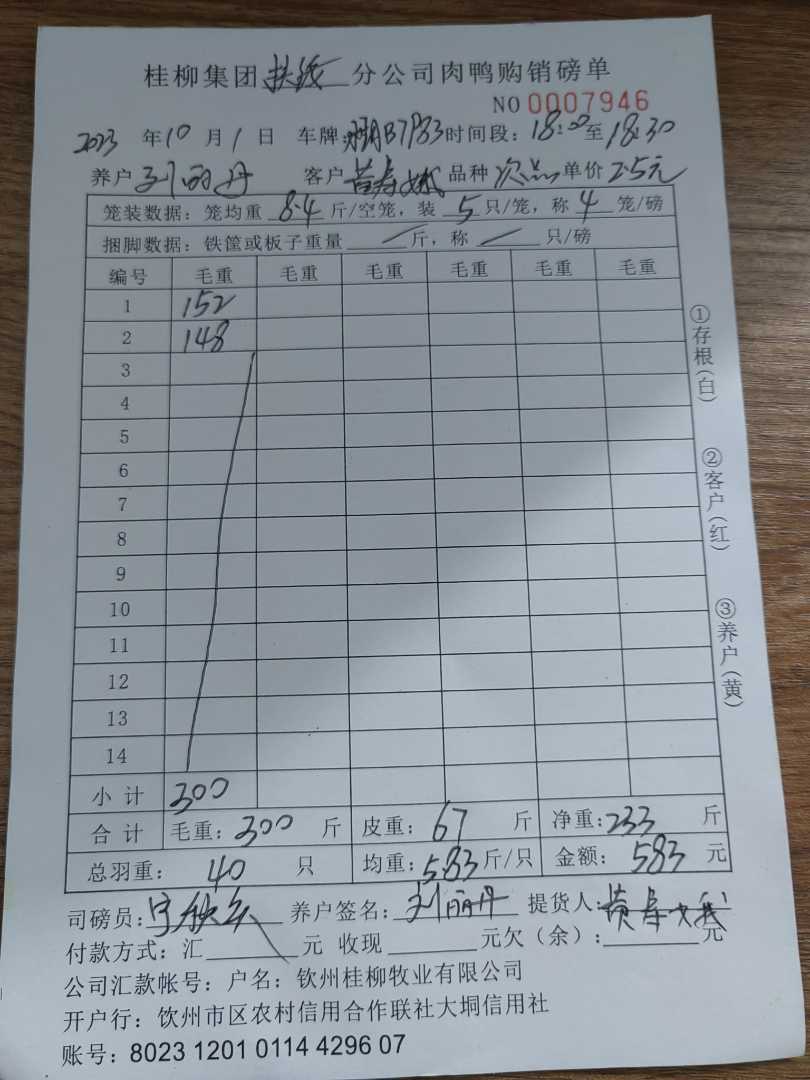 桂柳集团扶绥分公司肉鸭购销磅单
NO 0007946
2023 年 10 月 1 日 车牌: B7P83 时间段: 18:00 至 18:30
养户 刘丽丹 客户 黄寿娥 品种 次品 单价 2.5元
笼装数据: 笼均重 8.4 斤/空笼, 装 5 只/笼, 称 4 笼/磅
捆脚数据: 铁筐或板子重量 / 斤, 称 / 只/磅
编号 毛重 毛重 毛重 毛重 毛重 毛重
1 152
2 148
3
4
5
6
7
8
9
10
11
12
13
14
小计 300
合计 毛重: 300 斤 皮重: 67 斤 净重: 233 斤
总羽重: 40 只 均重: 5.83 斤/只 金额: 583 元
司磅员: 养户签名: 刘丽丹 提货人: 黄寿娥
付款方式: 汇 元 收现 元欠(余): 元
公司汇款帐号: 户名: 钦州桂柳牧业有限公司
开户行: 钦州市区农村信用合作联社大垌信用社
账号: 8023 1201 0114 4296 07
①存根(白)
②客户(红)
③养户(黄)